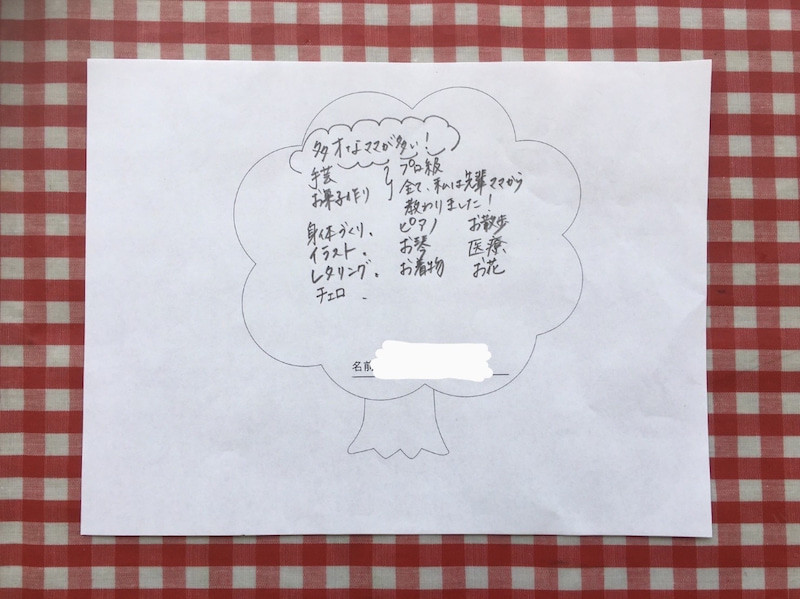 多才なママが多い!
手芸
お菓子作り
プロ級
全て、私は先輩ママから
教わりました!
身体づくり、 ピアノ お散歩
イラスト、 お琴 医療
レタリング、 お着物 お花
チェロ、
名前